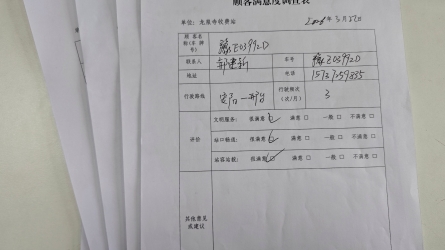 顾客满意度调查表
单位：龙泉寺收费站 2021年3月27日
顾客名称(车牌号) 豫E03992D
联系人 郭建新 车号 豫E03992D
地址 电话
行驶路线 安 行驶频次(次/月) 3
评价 文明服务： 很满意☑ 满意□ 一般□ 不满意□
站口畅通： 很满意☑ 满意□ 一般□ 不满意□
站容站貌： 很满意☑ 满意□ 一般□ 不满意□
其他意见或建议